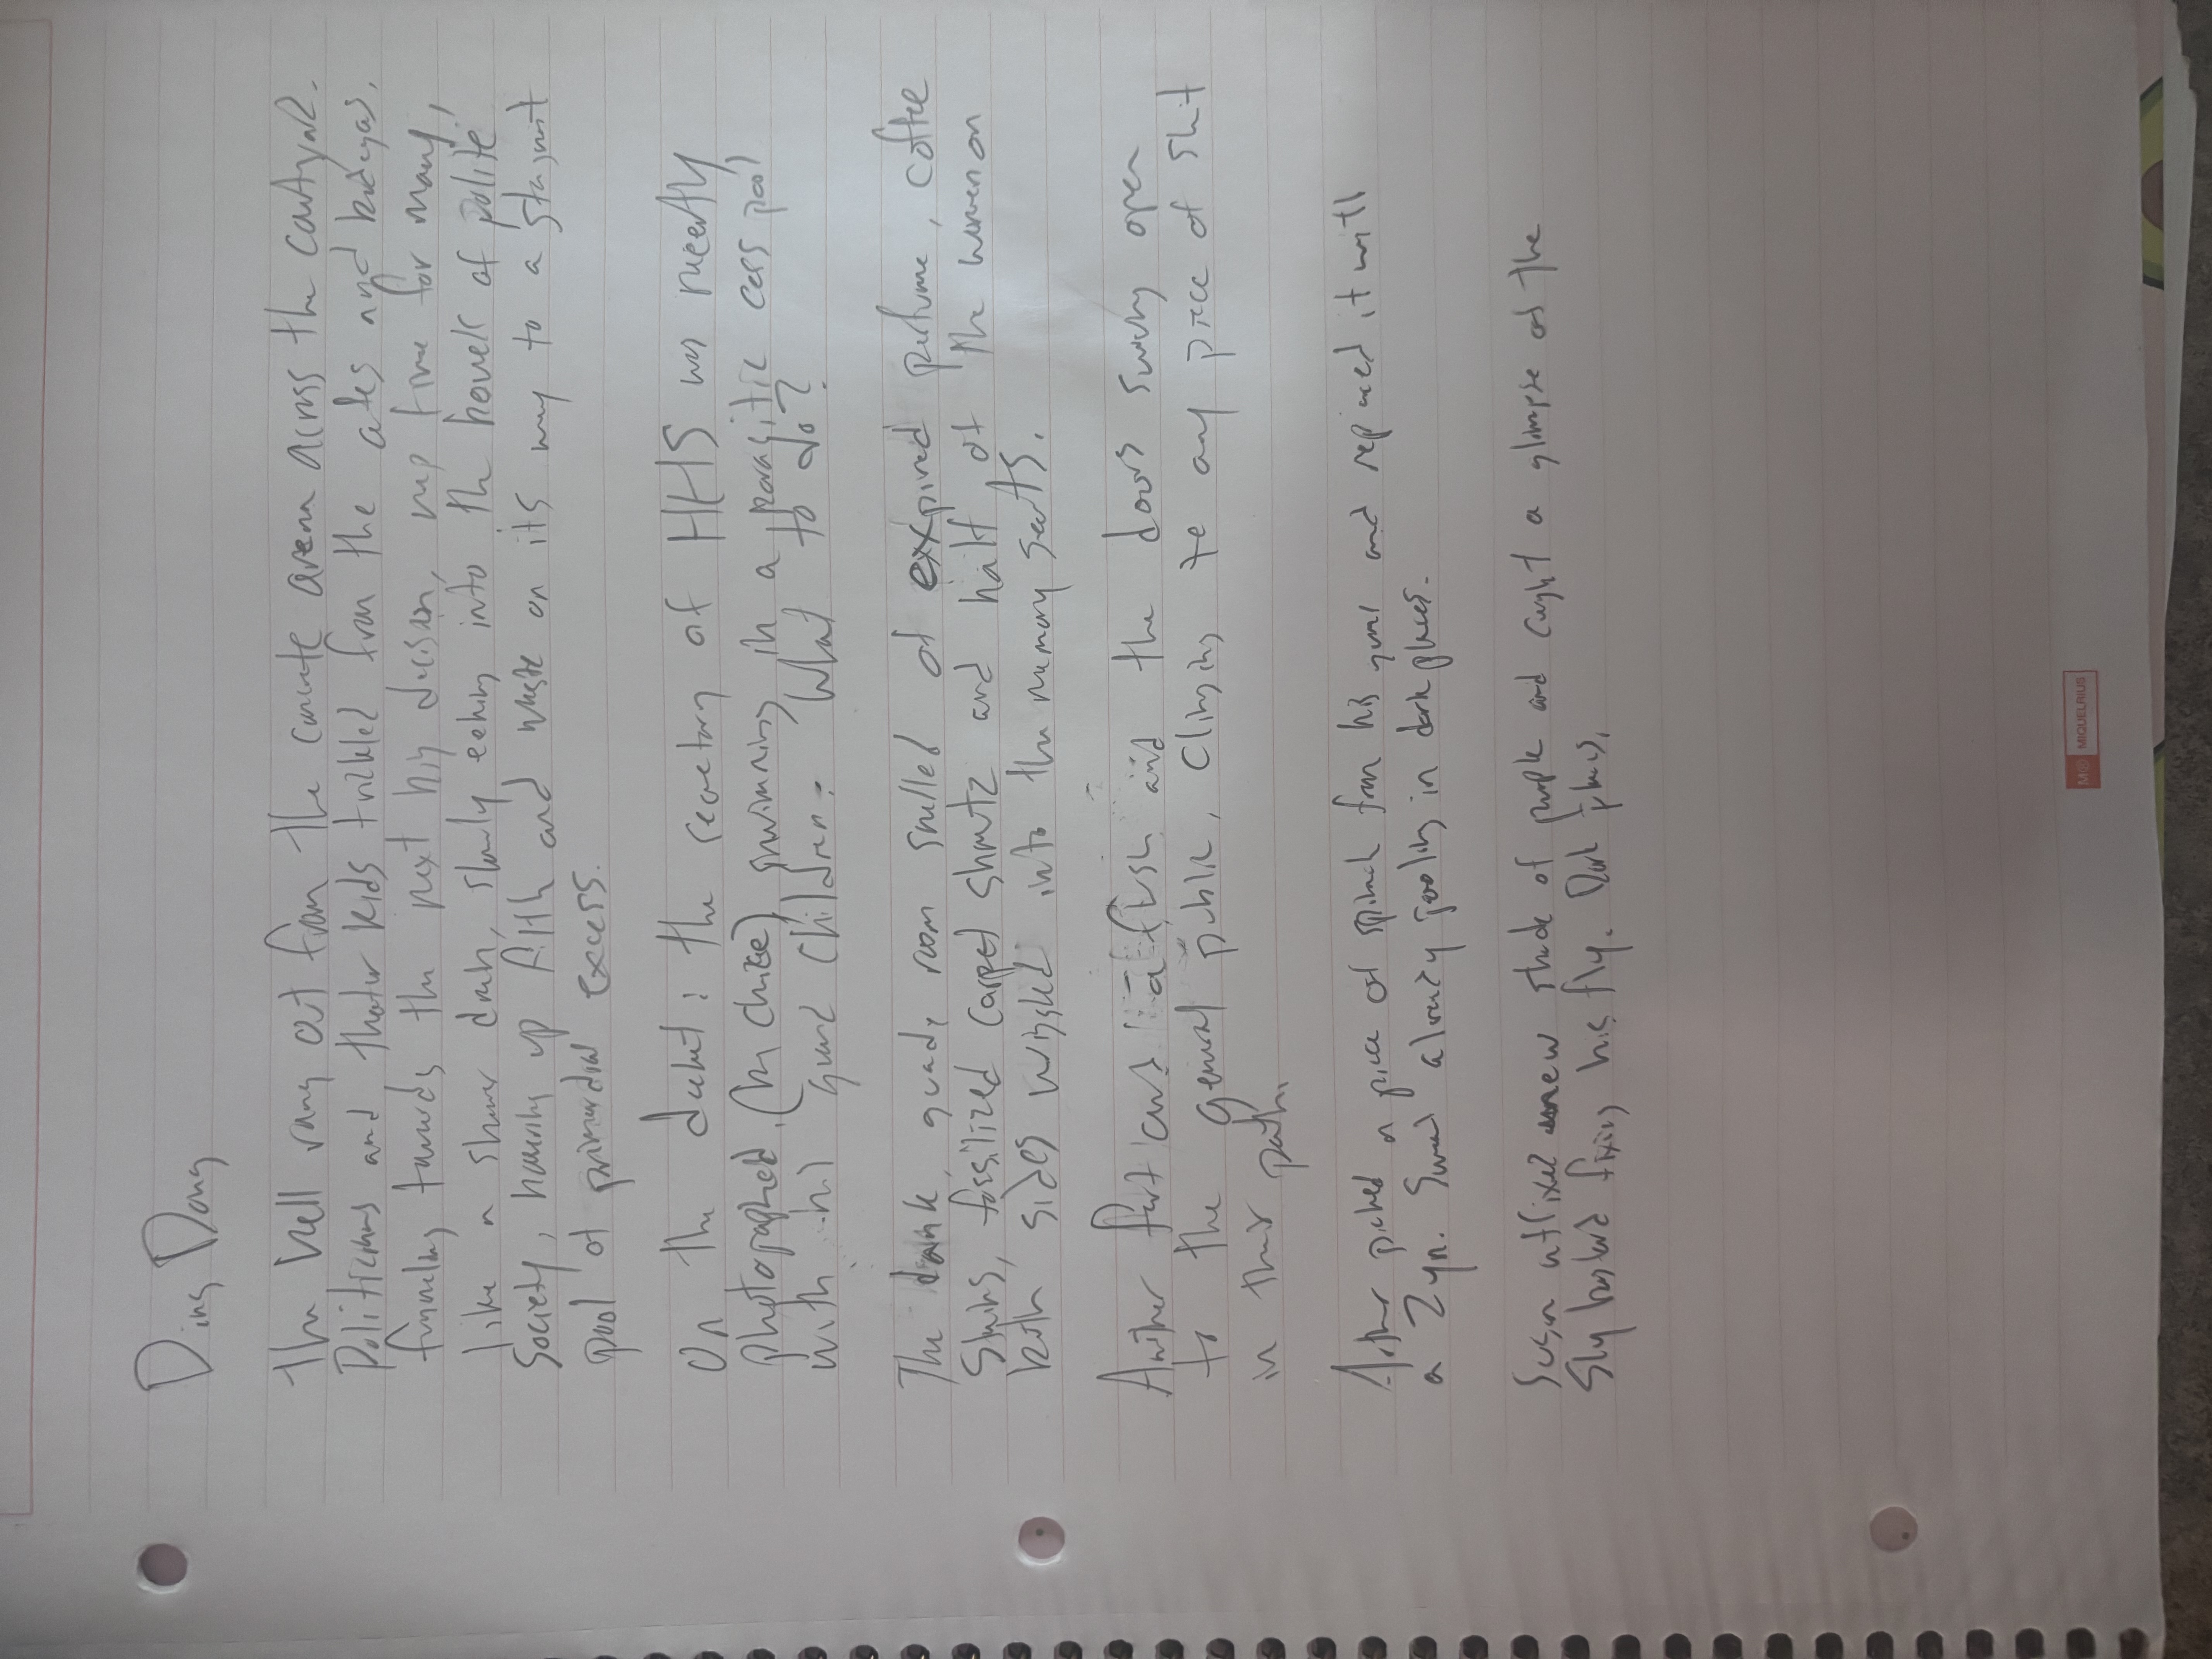 Ding Dong
The bell rang out from the concrete arena across the courtyard.
Politicians and theater kids trickled from the cafes and bodegas,
funneling towards the next big decision, nap time for many,
like a shower drain, slowly eeking into the bowels of polite
society, hoovering up filth and waste on its way to a stagnant
pool of primordial excess.
On the docket: the secretary of HHS was recently
photographed (by choice) swimming in a parasitic cess pool
with his grand children. What to do?
The dank, grady room smelled of expired perfume, coffee
stains, fossilized carpet shmutz and half of the women on
both sides winged into the mummy seats.
Another fart can't and the doors swing open
to the general public, clinging to any piece of shit
in their path.
Arthur picked a piece of spinach from his gums and replaced it with
a Zyn. Sweat already pooling in dark places.
Susan affixed new shade of purple and caught a glimpse of the
Sly bastard fixing his fly. Dark places.
M® MIQUELRIUS